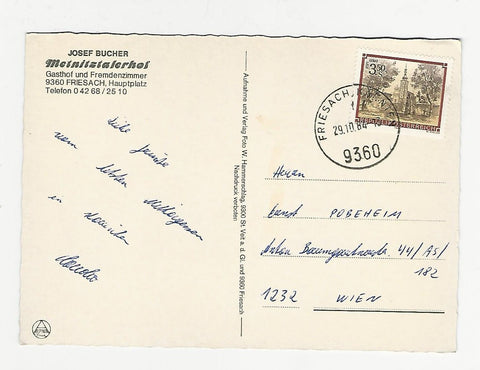 JOSEF BUCHER
Metnitztalerhof
Gasthof und Fremdenzimmer
9360 FRIESACH, Hauptplatz
Telefon 0 42 68 / 25 10
Liebe Grüße
vom letzten
in Kärnten
Aufnahme und Verlag Foto W. Hammerschlag, 9300 St. Veit a. d. Gl. und 9360 Friesach
Nachdruck verboten
3.50
REPUBLIK ÖSTERREICH
FRIESACH, KÄRNTEN
29.10.84
9360
Herrn
Ernst POBEHEIM
Anton Baumgartnerstr. 44/A5/
182
1232 WIEN